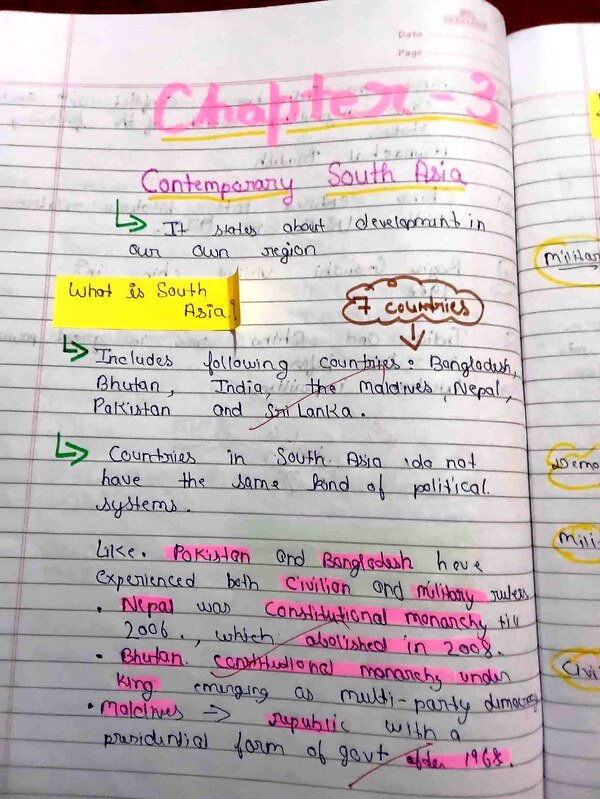 Date
Page
Chapter - 3
Contemporary South Asia
It states about development in
our own region
What is South
Asia?
7 countries
Includes following countries : Bangladesh,
Bhutan, India, the Maldives, Nepal,
Pakistan and Sri Lanka.
Countries in South Asia do not
have the same kind of political
systems.
Like. Pakistan and Bangladesh have
experienced both civilian and military rulers
• Nepal was constitutional monarchy till
2006., which abolished in 2008.
• Bhutan. constitutional monarchy under
king emerging as multi-party democracy
• Maldives → republic with a
presidential form of govt after 1968.
Militar
Demo
Mili
Civi